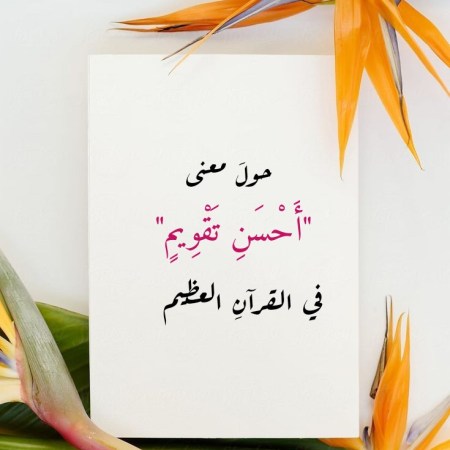 حولَ معنى
"أَحْسَنِ تَقْوِيمٍ"
في القرآنِ العظيم